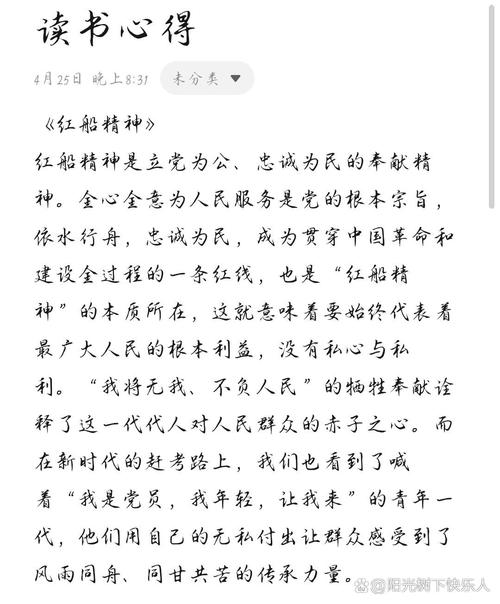 读书心得
4月25日 晚上8:31 未分类
《红船精神》
红船精神是立党为公、忠诚为民的奉献精
神。全心全意为人民服务是党的根本宗旨，
依水行舟，忠诚为民，成为贯穿中国革命和
建设全过程的一条红线，也是“红船精
神”的本质所在，这就意味着要始终代表着
最广大人民的根本利益，没有私心与私
利。“我将无我、不负人民”的牺牲奉献诠
释了这一代代人对人民群众的赤子之心。而
在新时代的赶考路上，我们也看到了喊
着“我是党员，我年轻，让我来”的青年一
代，他们用自己的无私付出让群众感受到了
风雨同舟、同甘共苦的传承力量。
@阳光树下快乐人